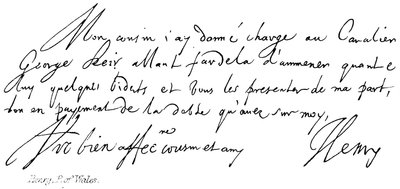 Mon cousin i'ay donné charge au Cavalier
George Keir allant par dela d'ammener quant e
luy quelques bidets et vous les presenter de ma part,
non en payement de la debte qu'avez sur moy,
Vre bien affec.no cousin et amy Henry
Henry, P. of Wales.